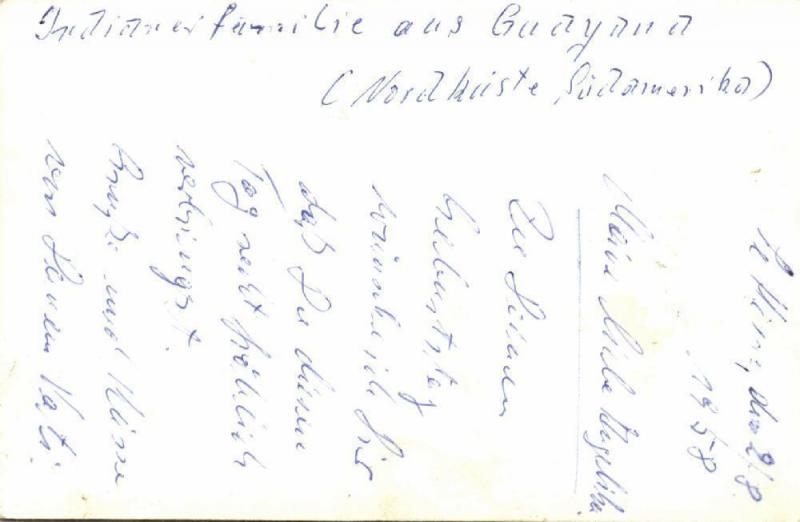 Indianerfamilie aus Guayana
(Nordküste Südamerika)
den 2/8.
1958
Meine liebe
Zu Deinem
Geburtstag
wünsche ich Dir
daß Du diesen
Tag recht fröhlich
verbringst.
Grüße und Küsse
von Deinem Vati.